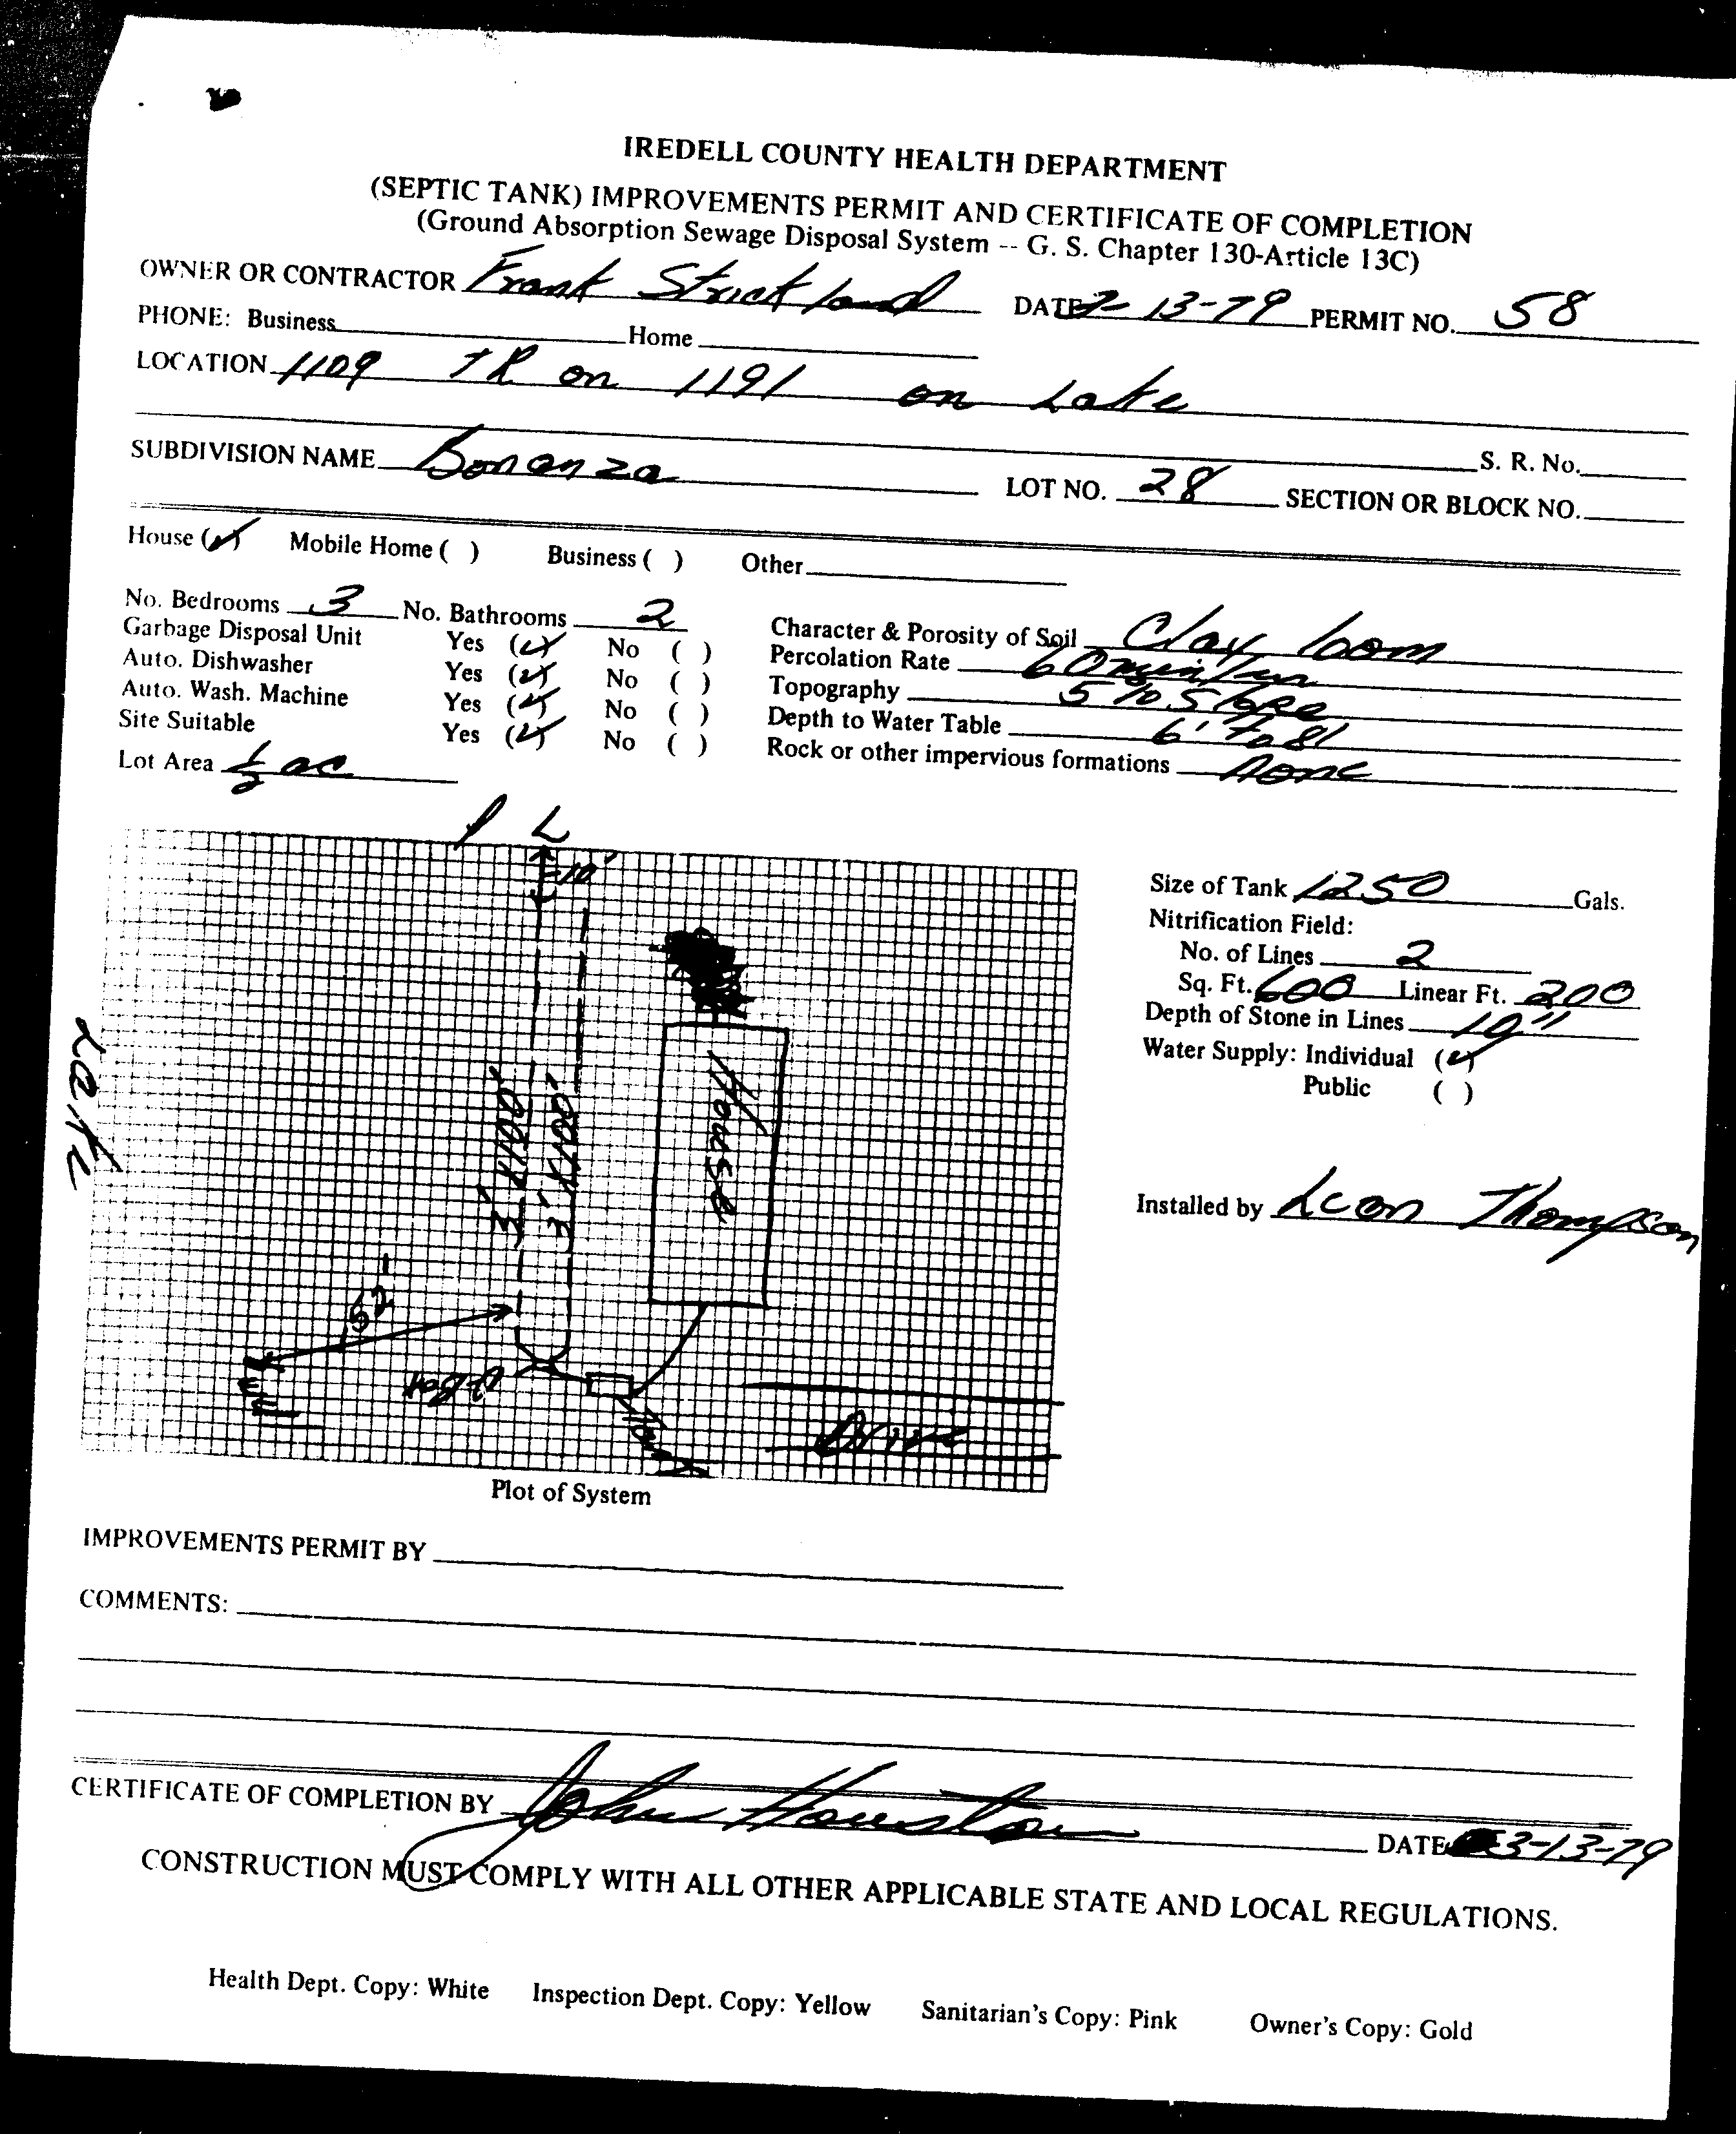 IREDELL COUNTY HEALTH DEPARTMENT
(SEPTIC TANK) IMPROVEMENTS PERMIT AND CERTIFICATE OF COMPLETION
(Ground Absorption Sewage Disposal System -- G. S. Chapter 130-Article 13C)
OWNER OR CONTRACTOR Frank Strickland DATE 2-13-79 PERMIT NO. 58
PHONE: Business Home
LOCATION 1109 TR on 1191 on Lake
S. R. No.
SUBDIVISION NAME Bonanza LOT NO. 28 SECTION OR BLOCK NO.
House (✓) Mobile Home ( ) Business ( ) Other
No. Bedrooms 3 No. Bathrooms 2
Garbage Disposal Unit Yes (✓) No ( )
Auto. Dishwasher Yes (✓) No ( )
Auto. Wash. Machine Yes (✓) No ( )
Site Suitable Yes (✓) No ( )
Lot Area ½ ac
Character & Porosity of Soil Clay loam
Percolation Rate 60 min/in
Topography 5% Slope
Depth to Water Table 6' to 8'
Rock or other impervious formations None
P L
10'
Lake
House
3'X100'
3'X100'
52'
Well
D-Box
Tank
Drive
Plot of System
Size of Tank 1250 Gals.
Nitrification Field:
No. of Lines 2
Sq. Ft. 600 Linear Ft. 200
Depth of Stone in Lines 10"
Water Supply: Individual (✓)
Public ( )
Installed by Leon Thompson
IMPROVEMENTS PERMIT BY
COMMENTS:
CERTIFICATE OF COMPLETION BY John Houston DATE 3-13-79
CONSTRUCTION MUST COMPLY WITH ALL OTHER APPLICABLE STATE AND LOCAL REGULATIONS.
Health Dept. Copy: White Inspection Dept. Copy: Yellow Sanitarian's Copy: Pink Owner's Copy: Gold